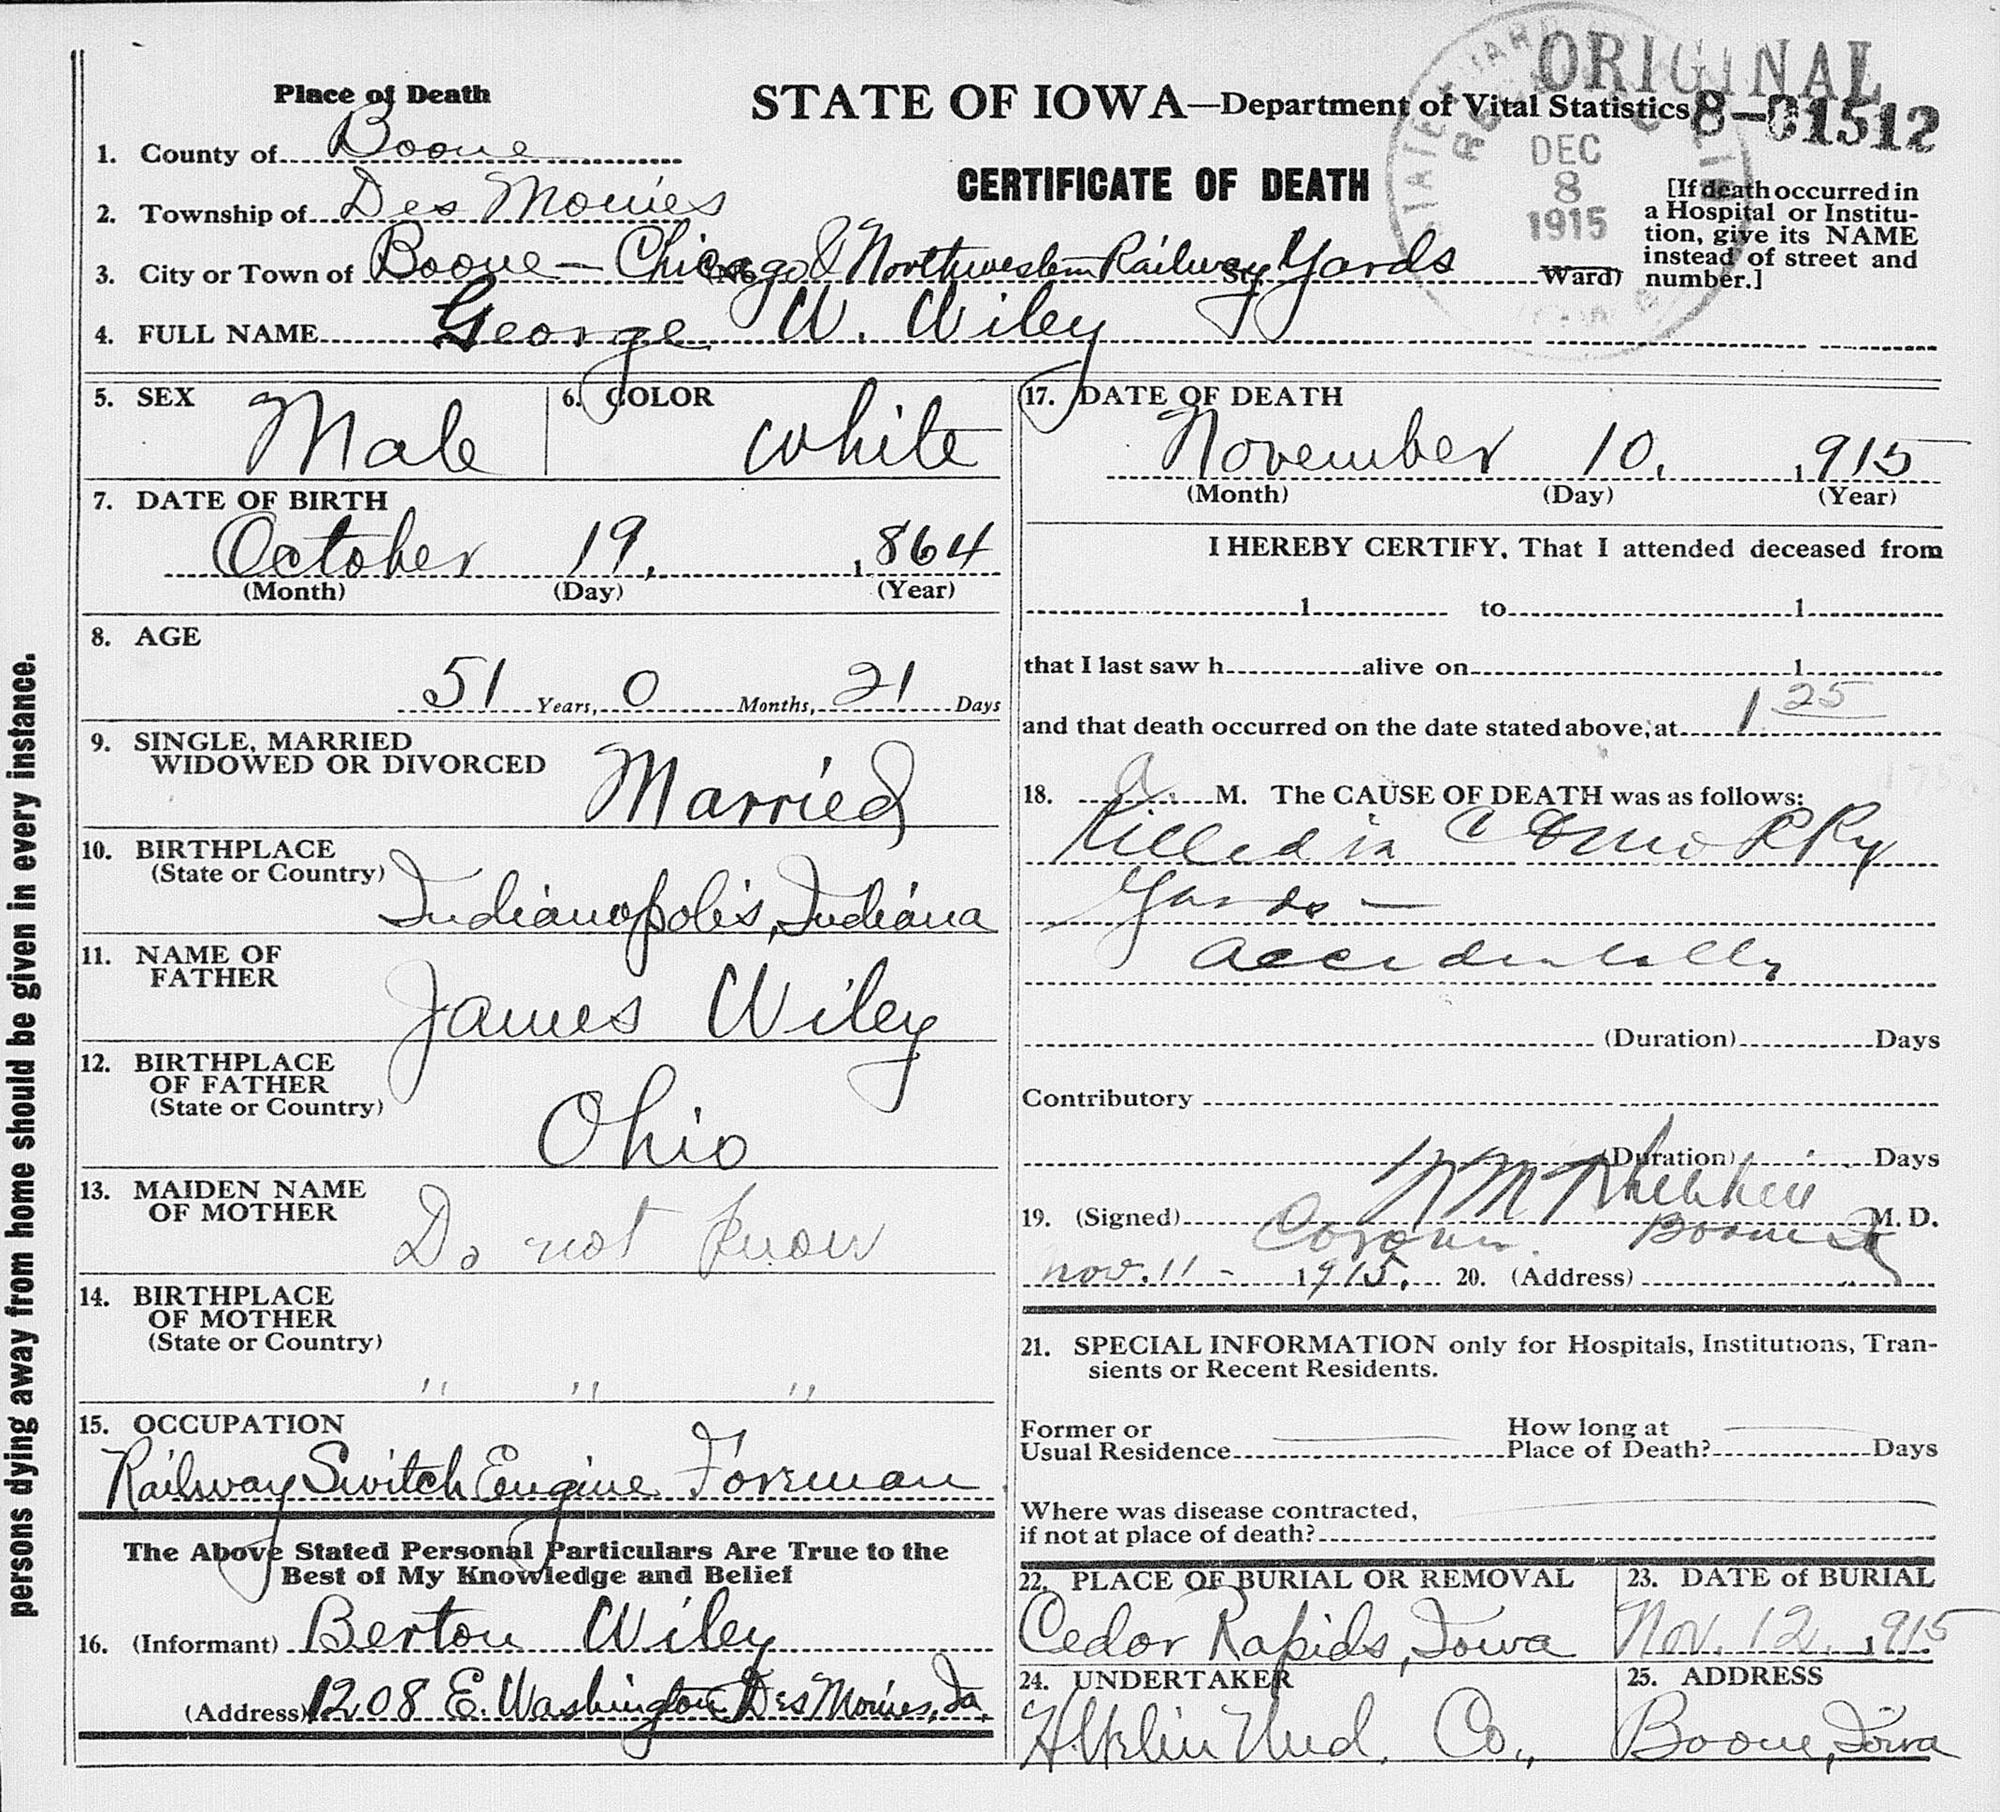 ORIGINAL
Place of Death
STATE OF IOWA—Department of Vital Statistics 8-01512
1. County of Boone
CERTIFICATE OF DEATH
DEC
8
1915
[If death occurred in
a Hospital or Institu-
tion, give its NAME
instead of street and
number.]
2. Township of Des Moines
3. City or Town of Boone — Chicago & Northwestern Railway Yards (No. St. Ward)
4. FULL NAME George W. Wiley
5. SEX Male
6. COLOR White
7. DATE OF BIRTH
October 19, 1864
(Month) (Day) (Year)
8. AGE
51 Years, 0 Months, 21 Days
9. SINGLE, MARRIED
WIDOWED OR DIVORCED Married
10. BIRTHPLACE
(State or Country)
Indianopolis, Indiana
11. NAME OF
FATHER
James Wiley
12. BIRTHPLACE
OF FATHER
(State or Country)
Ohio
13. MAIDEN NAME
OF MOTHER
Do not know
14. BIRTHPLACE
OF MOTHER
(State or Country)
" " "
15. OCCUPATION
Railway Switch Engine Foreman
The Above Stated Personal Particulars Are True to the
Best of My Knowledge and Belief
16. (Informant) Berton Wiley
(Address) 1208 E. Washington, Des Moines, Ia.
17. DATE OF DEATH
November 10, 1915
(Month) (Day) (Year)
I HEREBY CERTIFY, That I attended deceased from
1 to 1
that I last saw h alive on 1
and that death occurred on the date stated above, at 1 25
18. a M. The CAUSE OF DEATH was as follows:
Killed in Ry
Yards —
accidentally
(Duration) Days
Contributory
(Duration) Days
19. (Signed) M. D.
Coroner. Boone Ia
Nov. 11 - 1915. 20. (Address)
21. SPECIAL INFORMATION only for Hospitals, Institutions, Tran-
sients or Recent Residents.
Former or
Usual Residence
How long at
Place of Death? Days
Where was disease contracted,
if not at place of death?
22. PLACE OF BURIAL OR REMOVAL
Cedar Rapids, Iowa
23. DATE of BURIAL
Nov. 12, 1915
24. UNDERTAKER
Und. Co.,
25. ADDRESS
Boone, Iowa
persons dying away from home should be given in every instance.